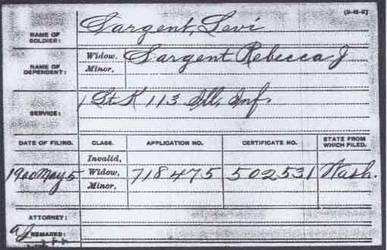 (3-H-2)
NAME OF SOLDIER: Sargent, Levi
NAME OF DEPENDENT: Widow, Sargent Rebecca J
Minor,
SERVICE: 1 Lt K 113 Ill. Inf.
DATE OF FILING. CLASS. APPLICATION NO. CERTIFICATE NO. STATE FROM WHICH FILED.
Invalid,
1900 May 5 Widow, 718475 502531 Wash.
Minor,
ATTORNEY:
REMARKS: